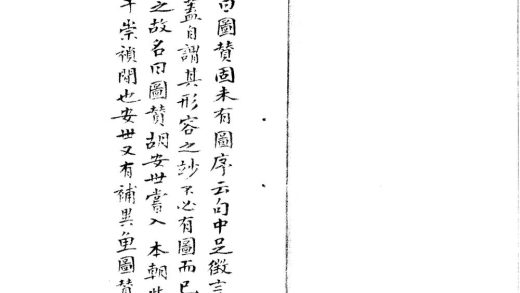 曰圖賛固未有圖序云句中足徵言
蓋自謂其形容之妙不必有圖而已
之故名曰圖賛胡安世嘗入 本朝
崇禎間也安世又有補異魚圖賛